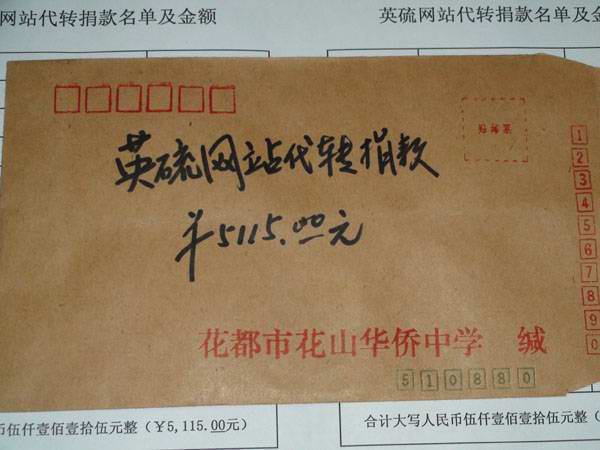 网站代转捐款名单及金额
英硫网站代转捐款名单及金
贴邮票
英硫网站代转捐款
¥5115.00元
1
2
3
4
5
6
7
8
9
0
花都市花山华侨中学 缄
510880
币伍仟壹佰壹拾伍元整（￥5,115.00元）
合计大写人民币伍仟壹佰壹拾伍元整（